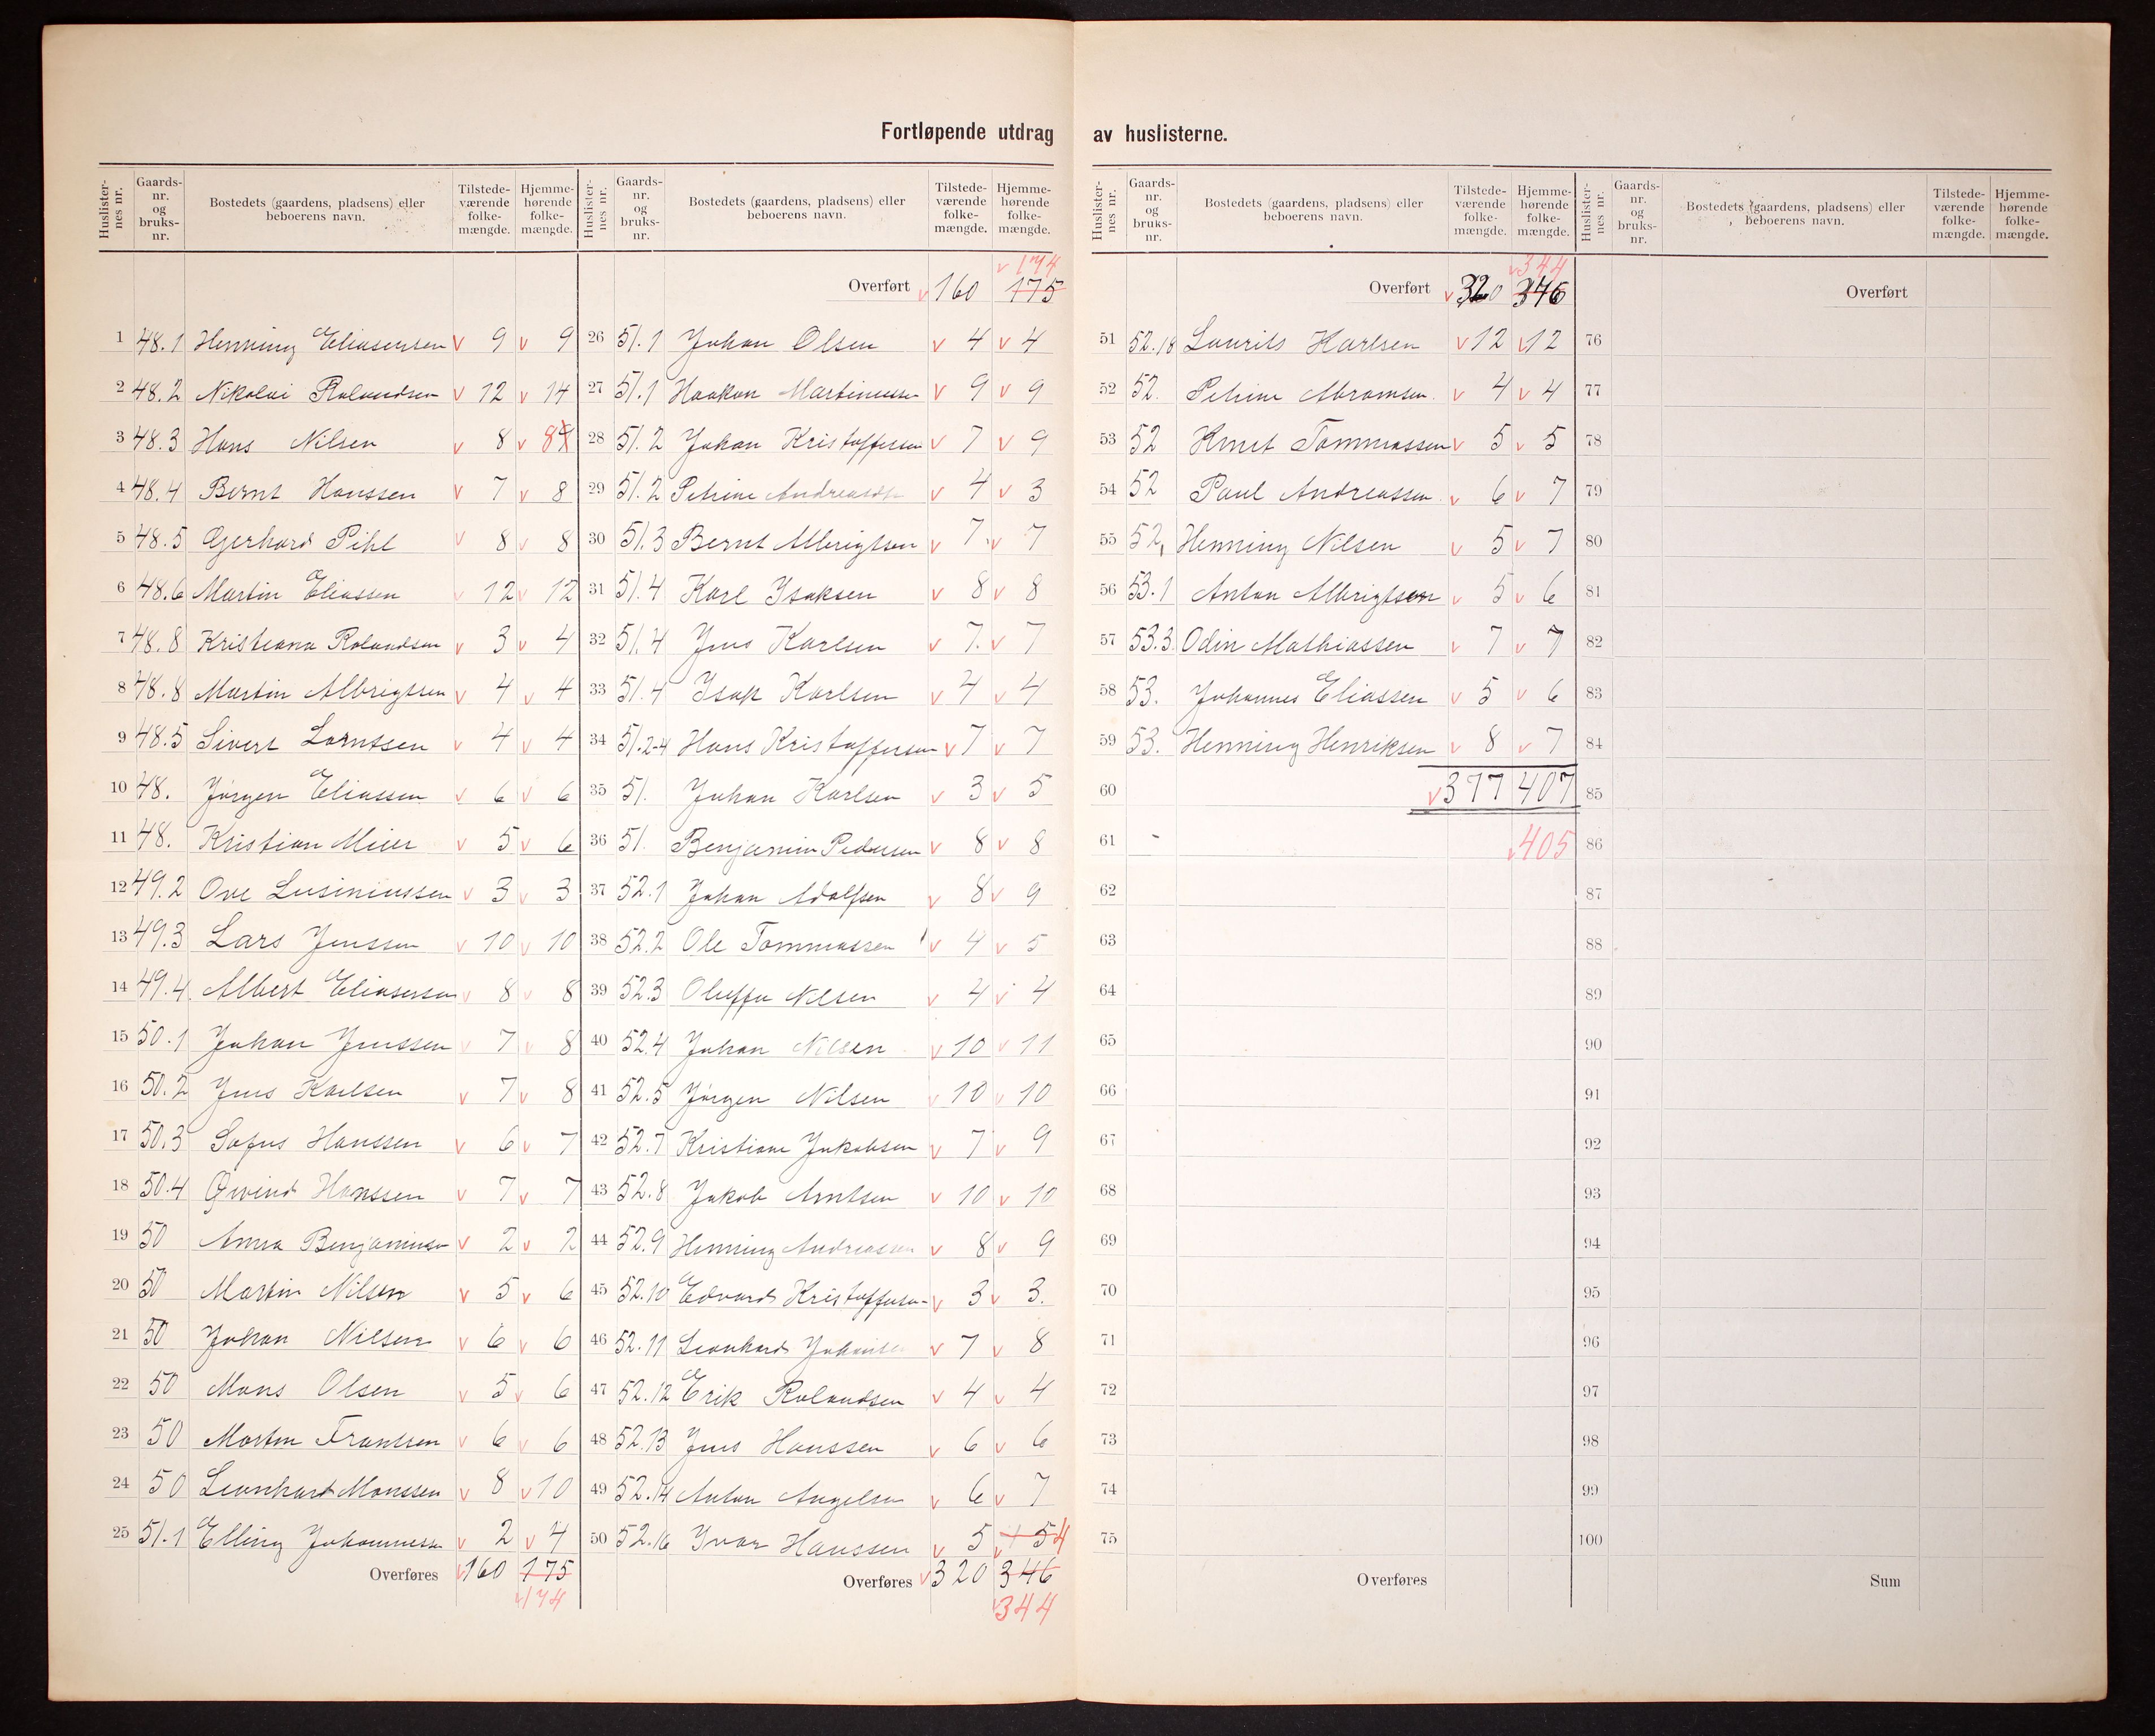 Fortløpende utdrag av huslisterne.
Huslisternes nr. Gaardsnr. og bruksnr. Bostedets (gaardens, pladsens) eller beboerens navn. Tilstedeværende folkemængde. Hjemmehørende folkemængde.
Huslisternes nr. Gaardsnr. og bruksnr. Bostedets (gaardens, pladsens) eller beboerens navn. Tilstedeværende folkemængde. Hjemmehørende folkemængde.
Huslisternes nr. Gaardsnr. og bruksnr. Bostedets (gaardens, pladsens) eller beboerens navn. Tilstedeværende folkemængde. Hjemmehørende folkemængde.
Huslisternes nr. Gaardsnr. og bruksnr. Bostedets (gaardens, pladsens) eller beboerens navn. Tilstedeværende folkemængde. Hjemmehørende folkemængde.
1 48.1 Henning Eliasersen v 9 v 9
2 48.2 Nikolai Rolandsen v 12 v 14
3 48.3 Hans Nilsen v 8 v 8
4 48.4 Bernt Hanssen v 7 v 8
5 48.5 Gerhard Pihl v 8 v 8
6 48.6 Martin Eliassen v 12 v 12
7 48.8 Kristiana Rolandsen v 3 v 4
8 48.8 Martin Albrigtsen v 4 v 4
9 48.5 Sivert Lorntsen v 4 v 4
10 48. Jørgen Eliassen v 6 v 6
11 48. Kristian Meier v 5 v 6
12 49.2 Ove Lusiniussen v 3 v 3
13 49.3 Lars Jenssen v 10 v 10
14 49.4 Albert Eliasersen v 8 v 8
15 50.1 Johan Jenssen v 7 v 8
16 50.2 Jens Karlsen v 7 v 8
17 50.3 Sofus Hanssen v 6 v 7
18 50.4 Øivind Hanssen v 7 v 7
19 50 Anna Benjaminsen v 2 v 2
20 50 Martin Nilsen v 5 v 6
21 50 Johan Nilsen v 6 v 6
22 50 Mons Olsen v 5 v 6
23 50 Morten Frantsen v 6 v 6
24 50 Leonhard Monssen v 8 v 10
25 51.1 Elling Johannessen v 2 v 4
Overføres v 160 175
v 174
v 174
Overført v 160 175
26 51.1 Johan Olsen v 4 v 4
27 51.1 Haakon Martinussen v 9 v 9
28 51.2 Johan Kristoffersen v 7 v 9
29 51.2 Petrine Andreasdtr v 4 v 3
30 51.3 Bernt Albrigtsen v 7 v 7
31 51.4 Karl Isaksen v 8 v 8
32 51.4 Jens Karlsen v 7 v 7
33 51.4 Isak Karlsen v 4 v 4
34 51.2-4 Hans Kristoffersen v 7 v 7
35 51. Johan Karlsen v 3 v 5
36 51. Benjamin Pedersen v 8 v 8
37 52.1 Johan Adolfsen v 8 v 9
38 52.2 Ole Tommassen v 4 v 5
39 52.3 Oluffa Nilsen v 4 v 4
40 52.4 Johan Nilsen v 10 v 11
41 52.5 Jørgen Nilsen v 10 v 10
42 52.7 Kristian Jakobsen v 7 v 9
43 52.8 Jakob Arntsen v 10 v 10
44 52.9 Henning Andreassen v 8 v 9
45 52.10 Edvard Kristoffersen v 3 v 3.
46 52.11 Leonhard v 7 v 8
47 52.12 Erik Rolandsen v 4 v 4
48 52.13 Jens Hanssen v 6 v 6
49 52.14 Anton Angelsen v 6 v 7
50 52.16 Ivar Hanssen v 5 v 5 4
Overføres v 320 346
v 344
v 344
Overført v 320 346
51 52.18 Laurits Karlsen v 12 v 12
52 52. Petrine Abramsen v 4 v 4
53 52 Knut Tommassen v 5 v 5
54 52 Paul Andreassen v 6 v 7
55 52, Henning Nilsen v 5 v 7
56 53.1 Anton Albrigtsen v 5 v 6
57 53.3 Odin Mathiassen v 7 v 7
58 53. Johannes Eliassen v 5 v 6
59 53. Henning Henriksen v 8 v 7
60 v 377 407
61 v 405
62
63
64
65
66
67
68
69
70
71
72
73
74
75
Overføres
Overført
76
77
78
79
80
81
82
83
84
85
86
87
88
89
90
91
92
93
94
95
96
97
98
99
100
Sum